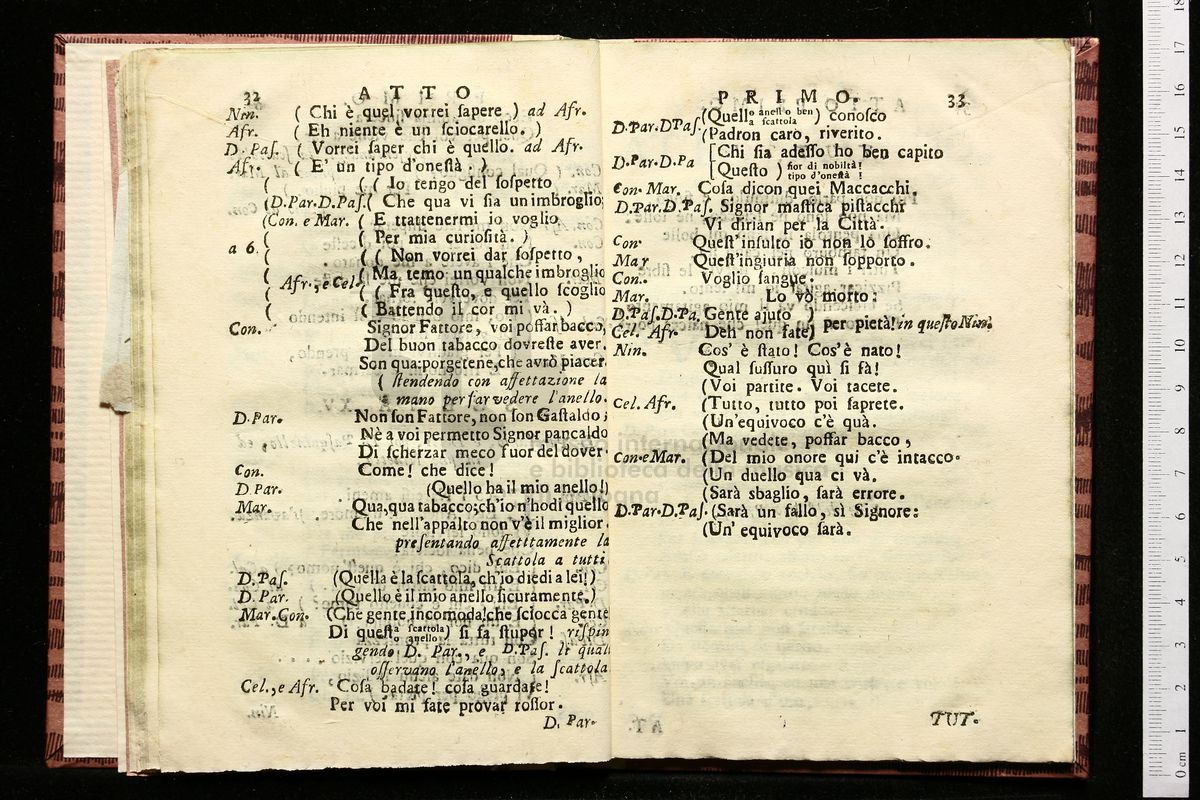 32 ATTO
Nin. ( Chi è quel vorrei ſapere ) ad Afr.
Afr. ( Eh niente è un ſciocarello. )
D. Paſ. ( Vorrei ſaper chi è quello. ad Afr.
Afr. ( E' un tipo d'oneſtà. )
( ( ( Io tengo del ſoſpetto
(D.Par.D.Paſ.( Che qua vi ſia un imbroglio
(Con. e Mar. ( E trattenermi io voglio
( ( Per mia curioſità. )
a 6. ( ( ( Non vorrei dar ſoſpetto,
( Afr., e Cel.( Ma, temo un qualche imbroglio
( ( ( Fra queſto, e quello ſcoglio
( ( Battendo il cor mi và. )
Con. Signor Fattore, voi poſſar bacco,
Del buon tabacco dovreſte aver.
Son qua: porgetene, che avrò piacer.
( ſtendendo con aſſettazione la
mano per far vedere l'anello.
D. Par. Non ſon Fattore, non ſon Gaſtaldo;
Nè a voi permetto Signor pancaldo
Di ſcherzar meco fuor del dover.
Con. Come! che dice!
D. Par. (Quello ha il mio anello!)
Mar. Qua, qua tabacco; ch'io n'hodi quello
Che nell'appalto non v'è il miglior.
preſentando aſſettamente la
Scattola a tutti
D. Paſ. (Quella è la ſcattola, ch'io diedi a lei!)
D. Par. (Quello è il mio anello ſicuramente.)
Mar. Con. (Che gente incomoda! che ſciocca gente
Di queſt a ſcattola o anello ) ſi fa ſtupor! riſpin
gendo D. Par., e D. Paſ. li quali
oſſervano l'anello, e la ſcattola
Cel., e Afr. Coſa badate! coſa guardate!
Per voi mi fate provar roſſor.
D. Par.
PRIMO. 33
D. Par. D Paſ. (Quell o aneſto o ben a ſcattola ) conoſco
(Padron caro, riverito.
D. Par. D. Pa [Chi ſia adeſſo ho ben capito
[Queſto ) fior di nobiltà! tipo d'oneſtà !
Con. Mar. Coſa dicon quei Maccacchi.
D. Par. D. Paſ. Signor maſtica piſtacchi
Vi dirian per la Città.
Con. Queſt'inſulto io non lo ſoffro.
Mar Queſt'ingiuria non ſopporto.
Con. Voglio ſangue.
Mar. Lo vò morto:
D. Paſ. D. Pa. Gente ajuto )
Cel. Afr. Deh non fate) per pietà! in queſto Nin.
Nin. Cos' è ſtato! Cos'è nato!
Qual ſuſſuro quì ſi fà!
(Voi partite. Voi tacete.
Cel. Afr. (Tutto, tutto poi ſaprete.
(Un'equivoco c'è quà.
(Ma vedete, poſſar bacco,
Con e Mar. (Del mio onore qui c'è intacco.
(Un duello qua ci và.
(Sarà sbaglio, ſarà errore.
D. Par. D. Paſ. (Sarà un fallo, sì Signore:
(Un' equivoco ſarà.
TUT.